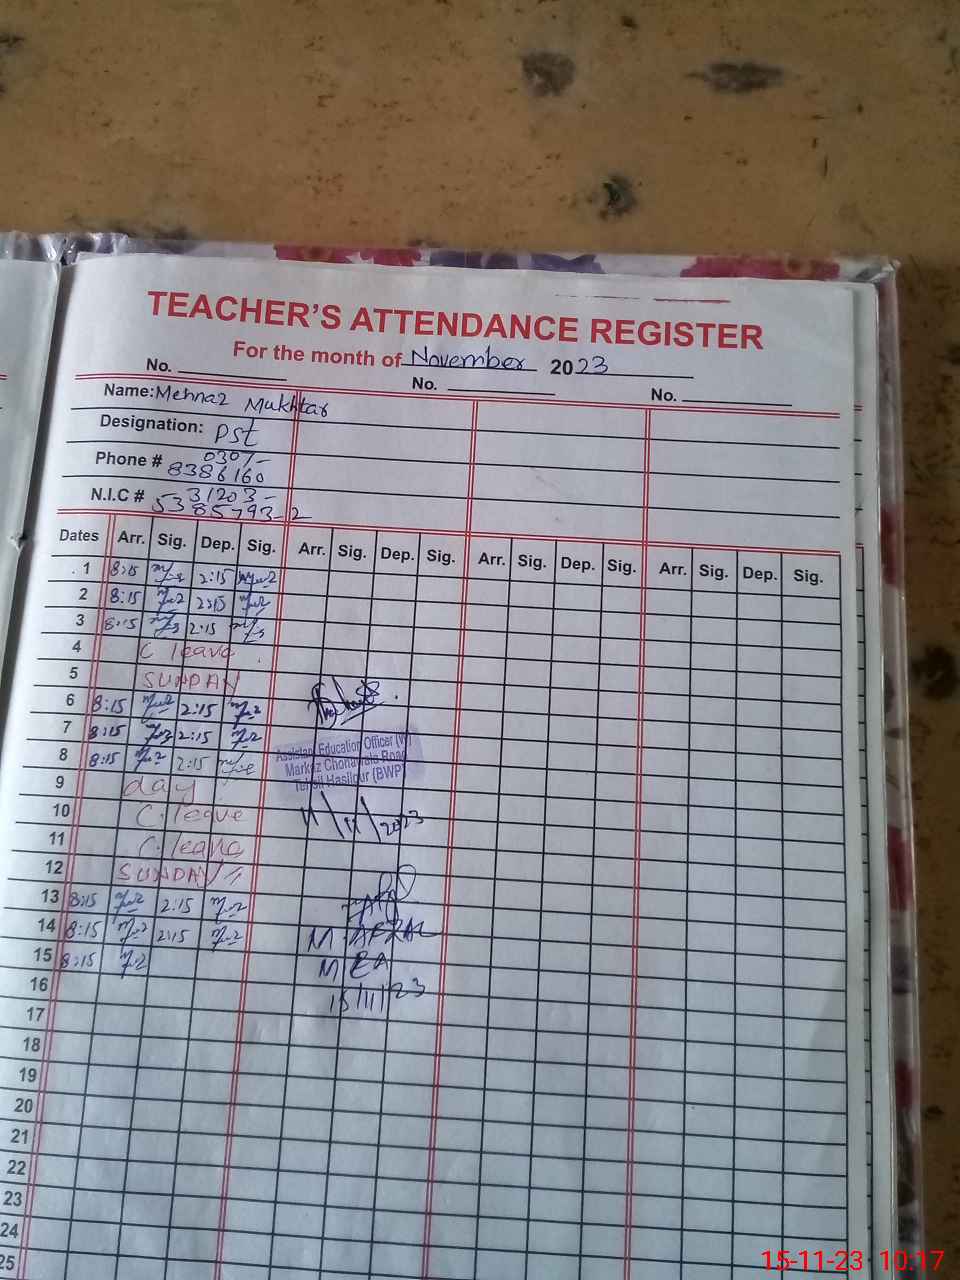 TEACHER'S ATTENDANCE REGISTER
For the month of November 2023
No. No. No.
Name: Mehnaz Mukhtar
Designation: PST
Phone # 0307-
8386160
N.I.C # 31203-
5385793-2
Dates Arr. Sig. Dep. Sig. Arr. Sig. Dep. Sig. Arr. Sig. Dep. Sig. Arr. Sig. Dep. Sig.
1 8:15 2:15
2 8:15 2:15
3 8:15 2:15
4 C leave
5 SUNDAY
6 8:15 2:15
7 8:15 2:15
8 8:15 2:15
Assistant Education Officer (W)
Markaz Chonawala Road
Tehsil Hasilpur (BWP)
9 day
10 C. leave
11/11/2023
11 C. leave
12 SUNDAY
13 8:15 2:15
14 8:15 2:15
M. AFZAL
15 8:15
MEA
16
15/11/23
17
18
19
20
21
22
23
24
25
15-11-23 10:17